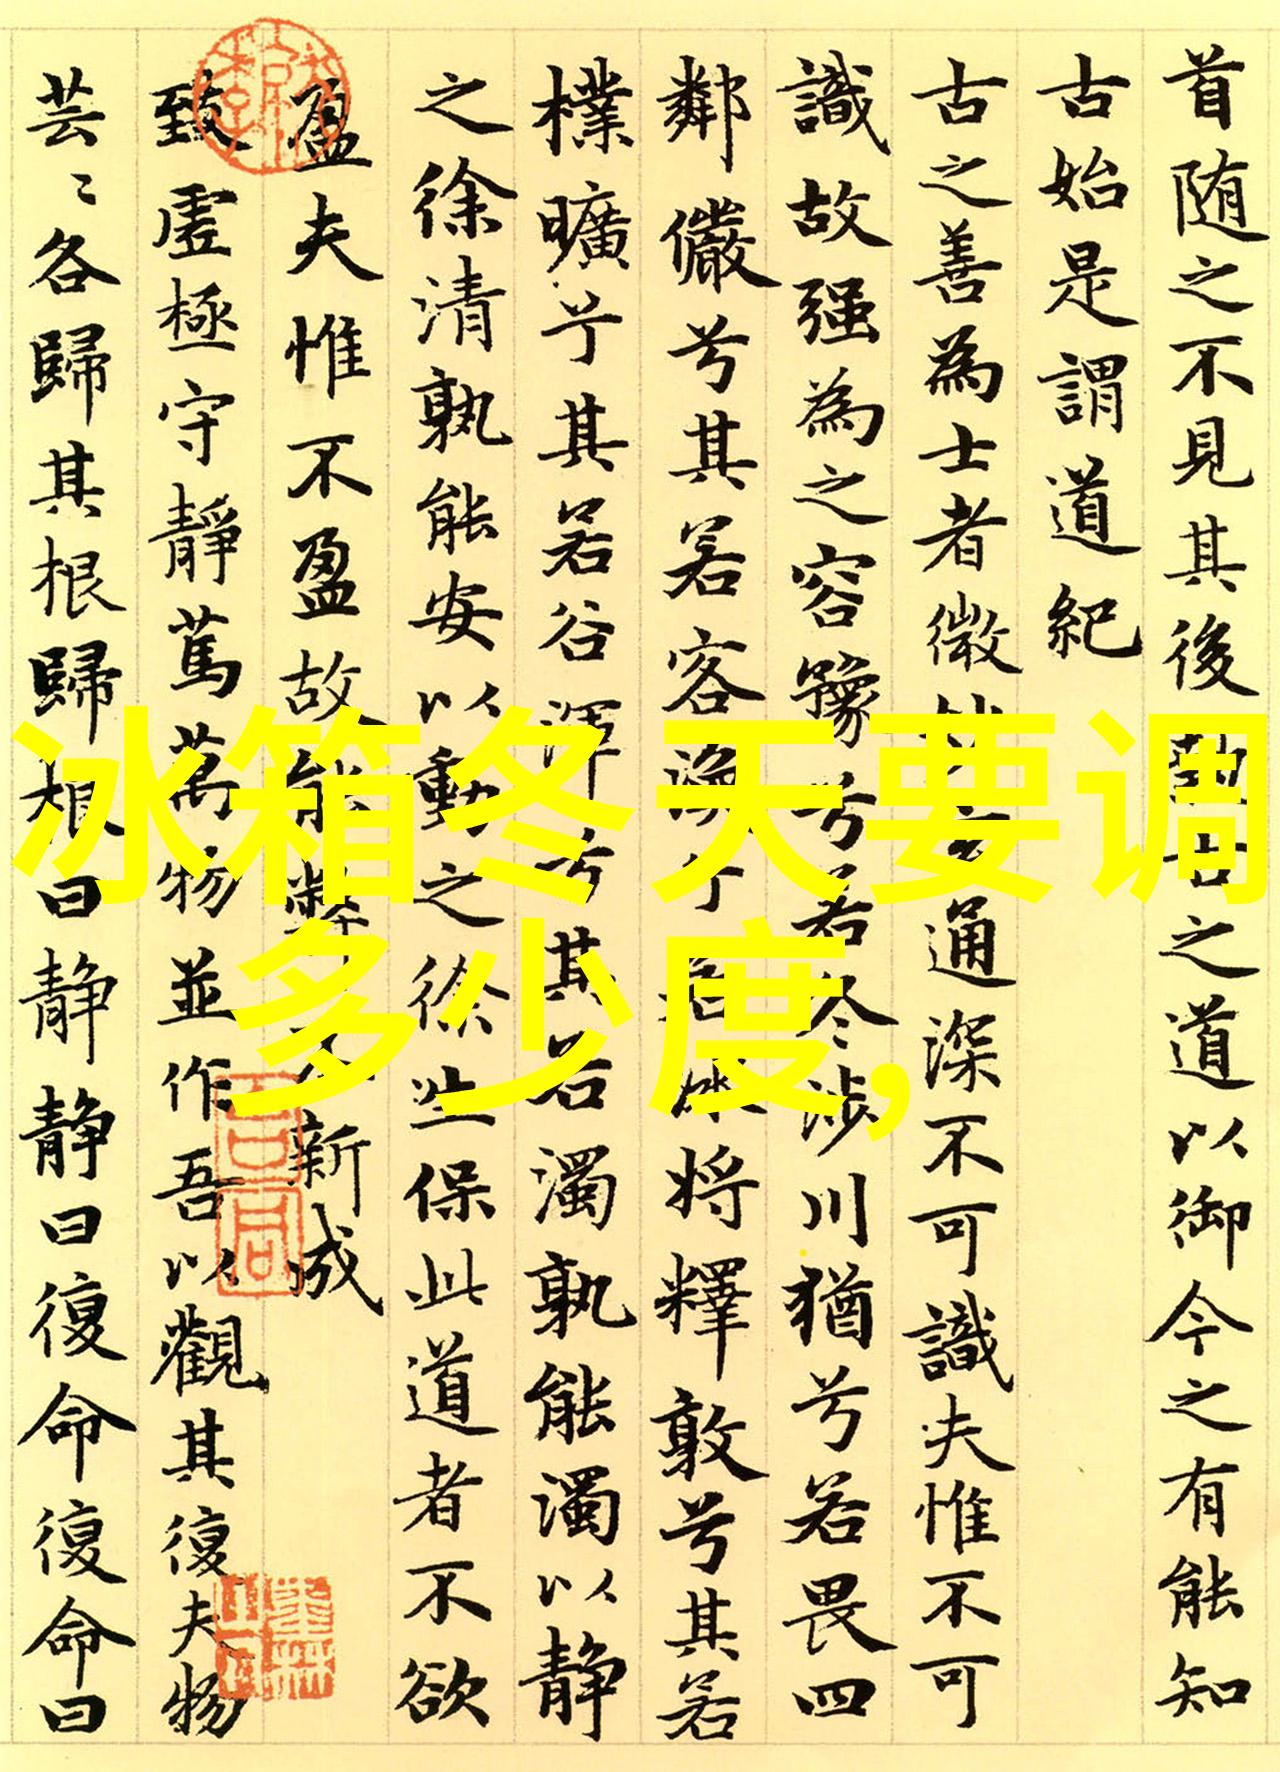 首随之不見其後執古之道以御今之有能知
古始是謂道紀
古之善為士者微妙玄通深不可識夫惟不可
識故强為之容豫兮若冬涉川猶兮若畏四
鄰儼兮其若客渙兮若冰將釋敦兮其若
樸曠兮其若谷渾兮其若濁孰能濁以静
之徐清孰能安以動之徐生保此道者不欲
盈夫惟不盈故能弊不新成
致虛極守靜篤萬物並作吾以觀其復夫物
芸〻各歸其根歸根曰静静曰復命復命曰
冰箱冬天要调
多少度,